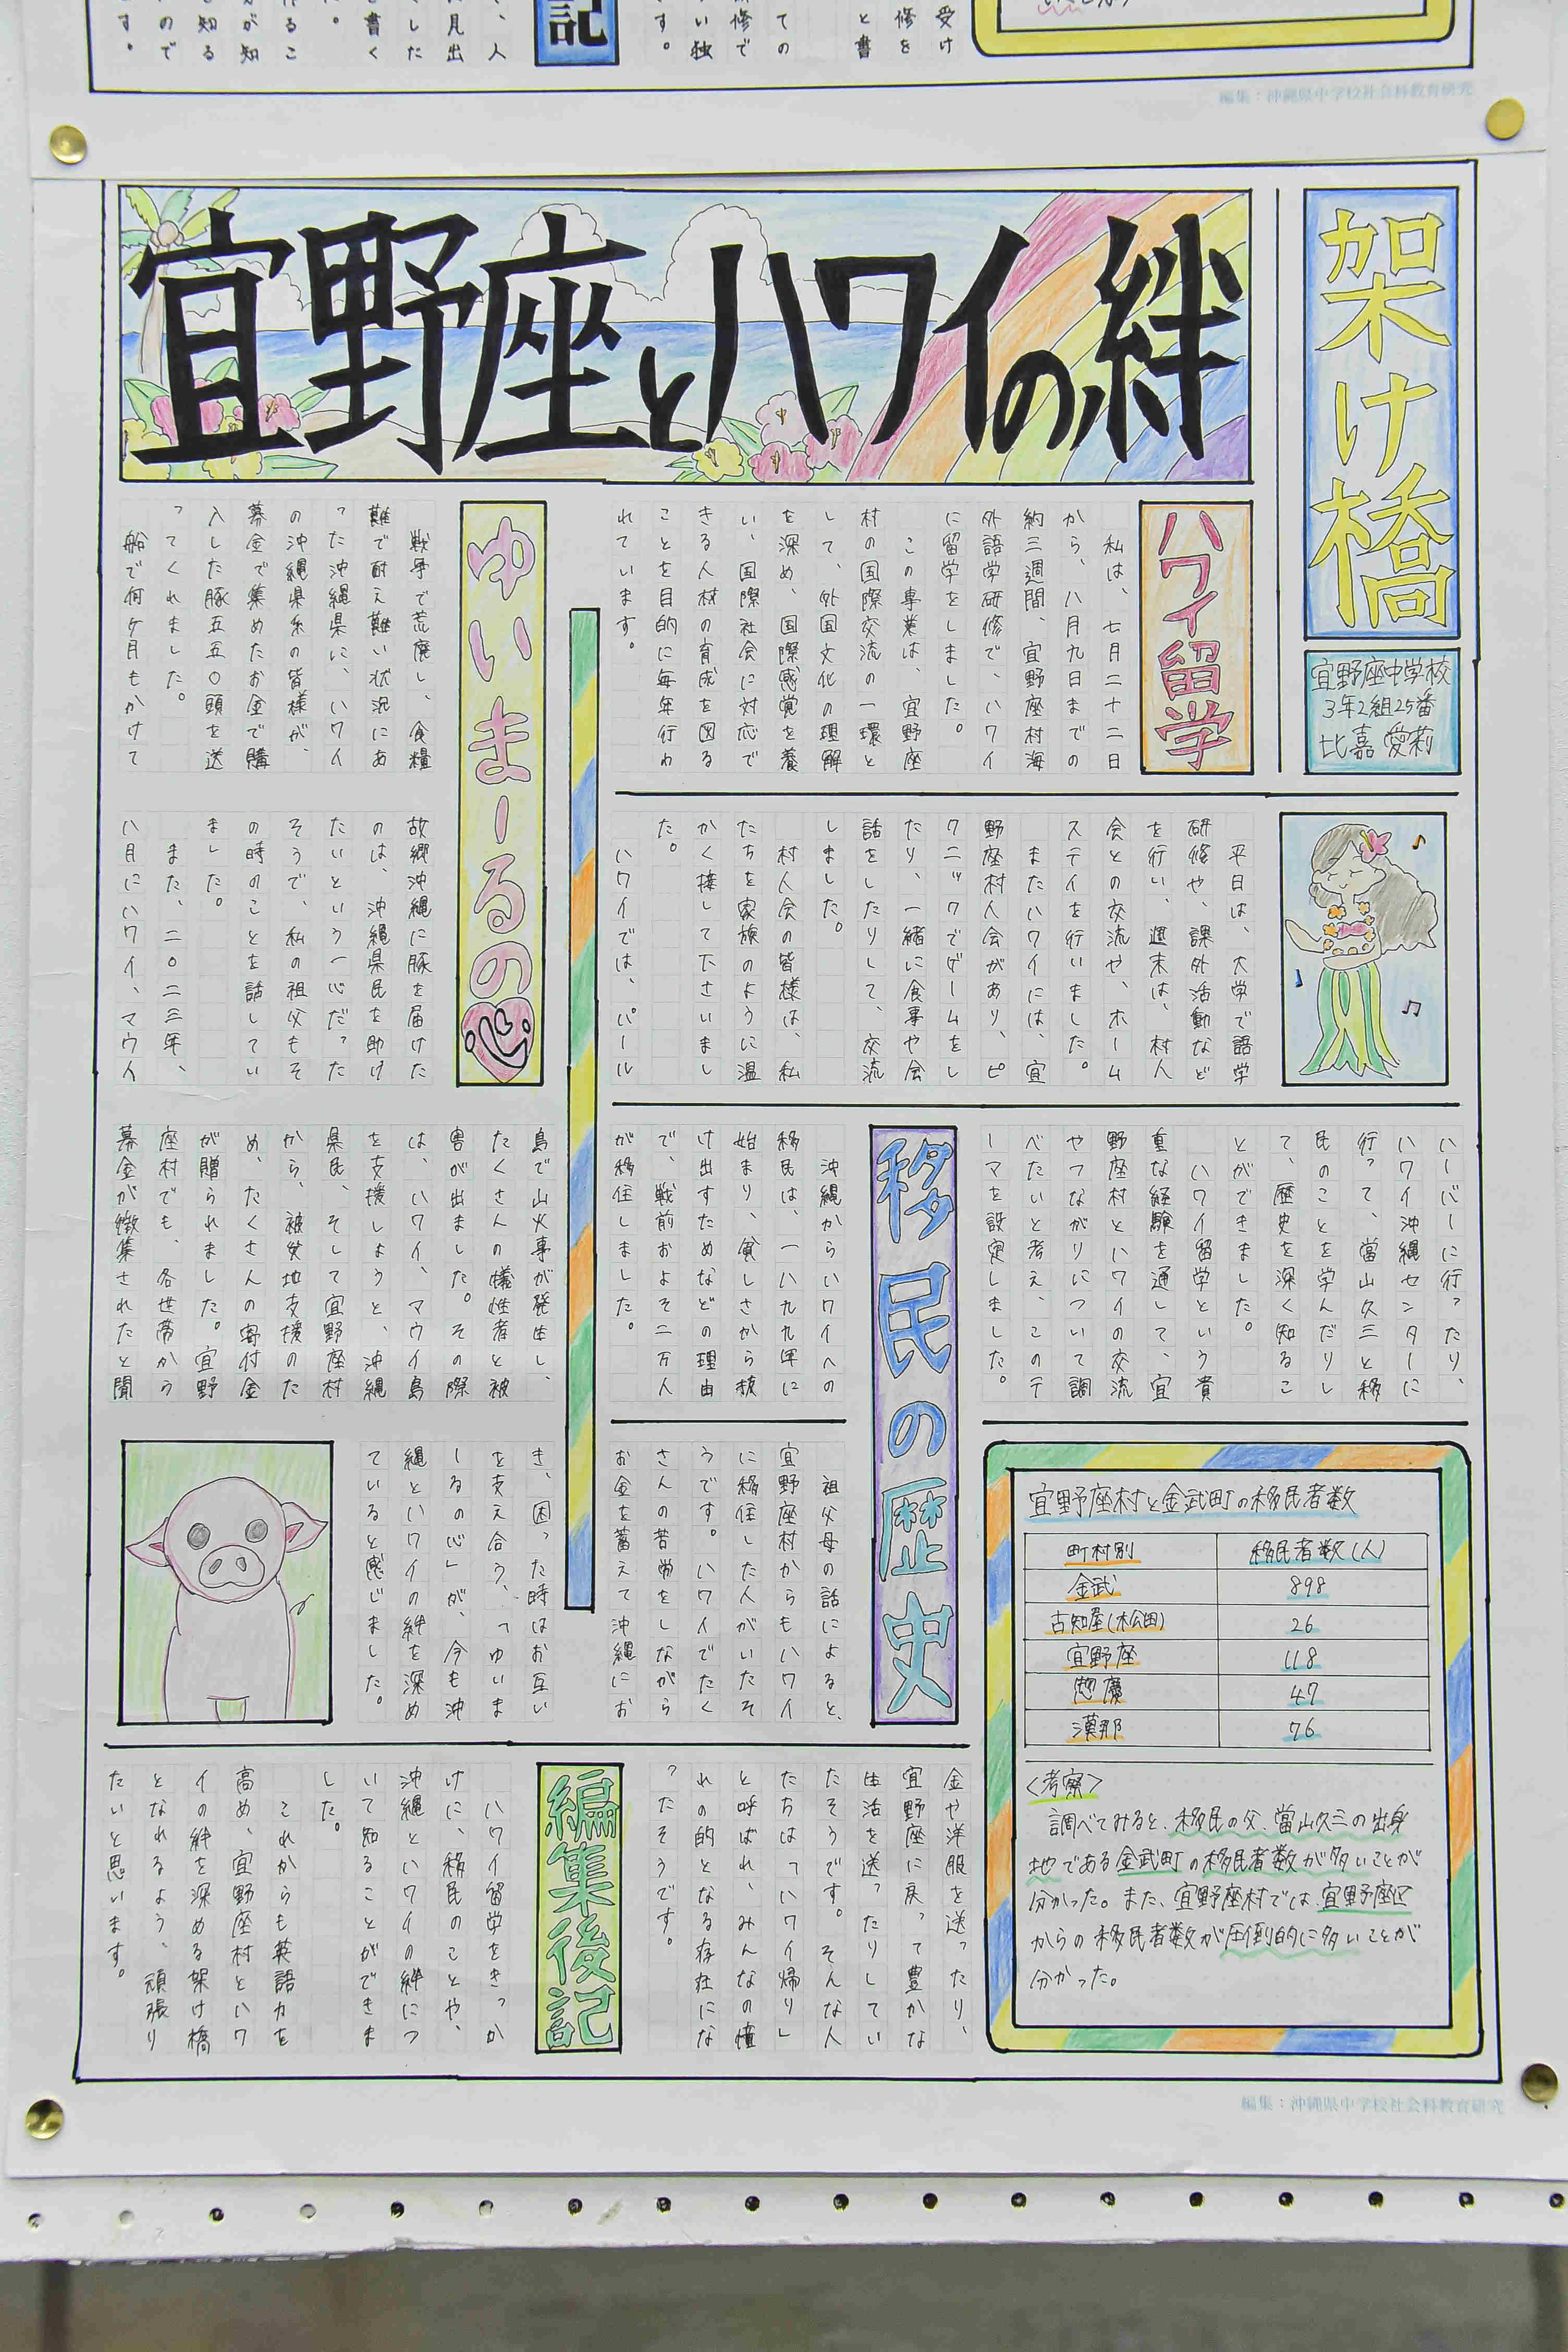 受け
修を
と書
ての
修で
い独
す。
記
、人
見出
した
書く
。
るこ
が知
知る
ので
す。
編集：沖縄県中学校社会科教育研究
架け橋
宜野座中学校
3年2組25番
比嘉 愛莉
宜野座とハワイの絆
ハワイ留学
私は、七月二十二日
から、八月九日までの
約三週間、宜野座村海
外語学研修で、ハワイ
に留学をしました。
この事業は、宜野座
村の国際交流の一環と
して、外国文化の理解
を深め、国際感覚を養
い、国際社会に対応で
きる人材の育成を図る
ことを目的に毎年行わ
れています。
平日は、大学で語学
研修や、課外活動など
を行い、週末は、村人
会との交流や、ホーム
ステイを行いました。
またハワイには、宜
野座村人会があり、ピ
クニックでゲームをし
たり、一緒に食事や会
話をしたりして、交流
しました。
村人会の皆様は、私
たちを家族のように温
かく接して下さいまし
た。
ハワイでは、パール
ハーバーに行ったり、
ハワイ沖縄センターに
行って、當山久三と移
民のことを学んだりし
て、歴史を深く知るこ
とができました。
ハワイ留学という貴
重な経験を通して、宜
野座村とハワイの交流
やつながりについて調
べたいと考え、このテ
ーマを設定しました。
移民の歴史
沖縄からハワイへの
移民は、一八九九年に
始まり、貧しさから抜
け出すためなどの理由
で、戦前およそ二万人
が移住しました。
祖父母の話によると、
宜野座村からもハワイ
に移住した人がいたそ
うです。ハワイでたく
さんの苦労をしながら
お金を蓄えて沖縄にお
金や洋服を送ったり、
宜野座に戻って豊かな
生活を送ったりしてい
たそうです。そんな人
たちは「ハワイ帰り」
と呼ばれ、みんなの憧
れの的となる存在にな
ったそうです。
宜野座村と金武町の移民者数
町村別 移民者数(人)
金武 898
古知屋(松田) 26
宜野座 118
惣慶 47
漢那 76
<考察>
調べてみると、移民の父、當山久三の出身
地である金武町の移民者数が多いことが
分かった。また、宜野座村では、宜野座区
からの移民者数が圧倒的に多いことが
分かった。
ゆいまーるの心
戦争で荒廃し、食糧
難で耐え難い状況にあ
った沖縄県に、ハワイ
の沖縄県系の皆様が、
募金で集めたお金で購
入した豚五五〇頭を送
ってくれました。
船で何ヶ月もかけて
故郷沖縄に豚を届けた
のは、沖縄県民を助け
たいという一心だった
そうで、私の祖父もそ
の時のことを話してい
ました。
また、二〇二三年、
八月にハワイ、マウイ
島で山火事が発生し、
たくさんの犠牲者と被
害が出ました。その際
は、ハワイ、マウイ島
を支援しようと、沖縄
県民、そして宜野座村
から、被災地支援のた
め、たくさんの寄付金
が贈られました。宜野
座村でも、各世帯から
募金が徴集されたと聞
き、困った時はお互い
を支え合う、「ゆいま
ーるの心」が、今も沖
縄とハワイの絆を深め
ていると感じました。
編集後記
ハワイ留学をきっか
けに、移民のことや、
沖縄とハワイの絆につ
いて知ることができま
した。
これからも英語力を
高め、宜野座村とハワ
イの絆を深める架け橋
となれるよう、頑張り
たいと思います。
編集：沖縄県中学校社会科教育研究